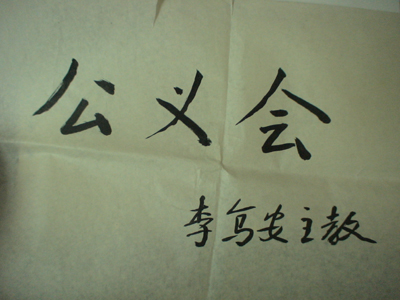 公义会
李笃安主教